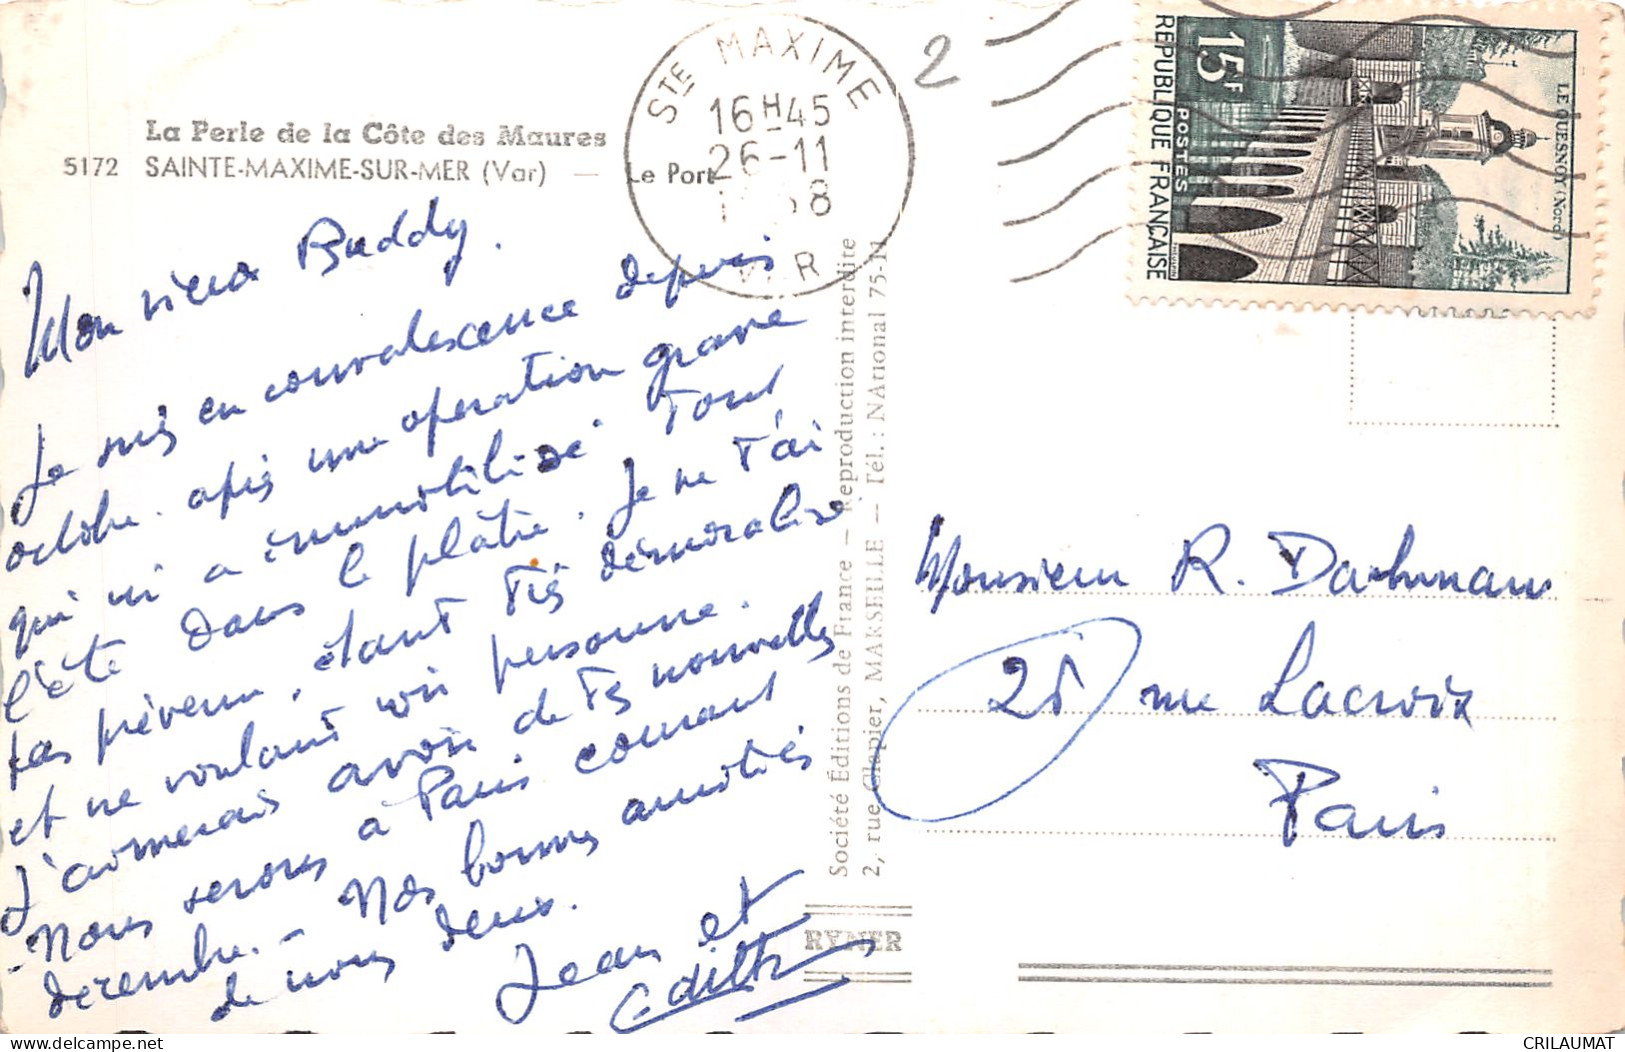 La Perle de la Côte des Maures
5172 SAINTE-MAXIME-SUR-MER (Var) — Le Port
STE MAXIME
16H45
26-11
58
VAR
2
15F
POSTES
REPUBLIQUE FRANÇAISE
LE QUESNOY (Nord)
Mon vieux Buddy.
Je suis en convalescence depuis
octobre. après une opération grave
qui m'a immobilisé tout
l'été dans le plâtre. Je ne t'ai
pas prévenu, étant très démoralisé
et ne voulant voir personne.
J'aimerais avoir de tes nouvelles
- Nous serons à Paris courant
décembre. - Nos bonnes amitiés
de nous deux.
Jean et
Edith
Société Éditions de France — Reproduction interdite
2, rue Clapier, MARSEILLE — Tél.: NAtional 75-11
RYNER
Monsieur R. Dachmann
25 rue Lacroix
Paris
CRILAUMAT